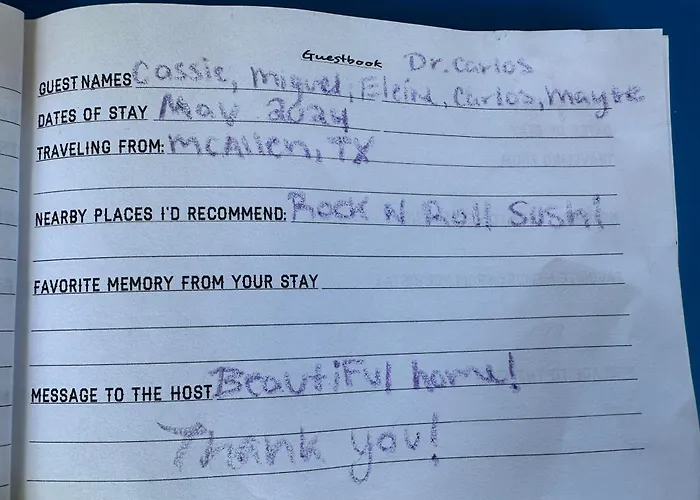 Guestbook Dr. Carlos
GUEST NAMES Cassie, Miguel, Eleine, Carlos, Mayte
DATES OF STAY May 2024
TRAVELING FROM: McAllen, TX
NEARBY PLACES I'D RECOMMEND: Rock N Roll Sushi
FAVORITE MEMORY FROM YOUR STAY
MESSAGE TO THE HOST Beautiful home!
Thank you!